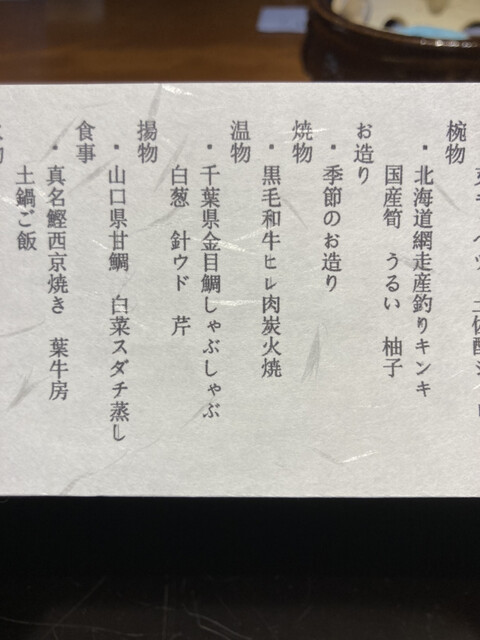 椀物
・北海道網走産釣りキンキ
国産筍　うるい　柚子
お造り
・季節のお造り
焼物
・黒毛和牛ヒレ肉炭火焼
温物
・千葉県金目鯛しゃぶしゃぶ
白葱　針ウド　芹
揚物
・山口県甘鯛　白菜スダチ蒸し
食事
・真名鰹西京焼き　葉牛房
土鍋ご飯